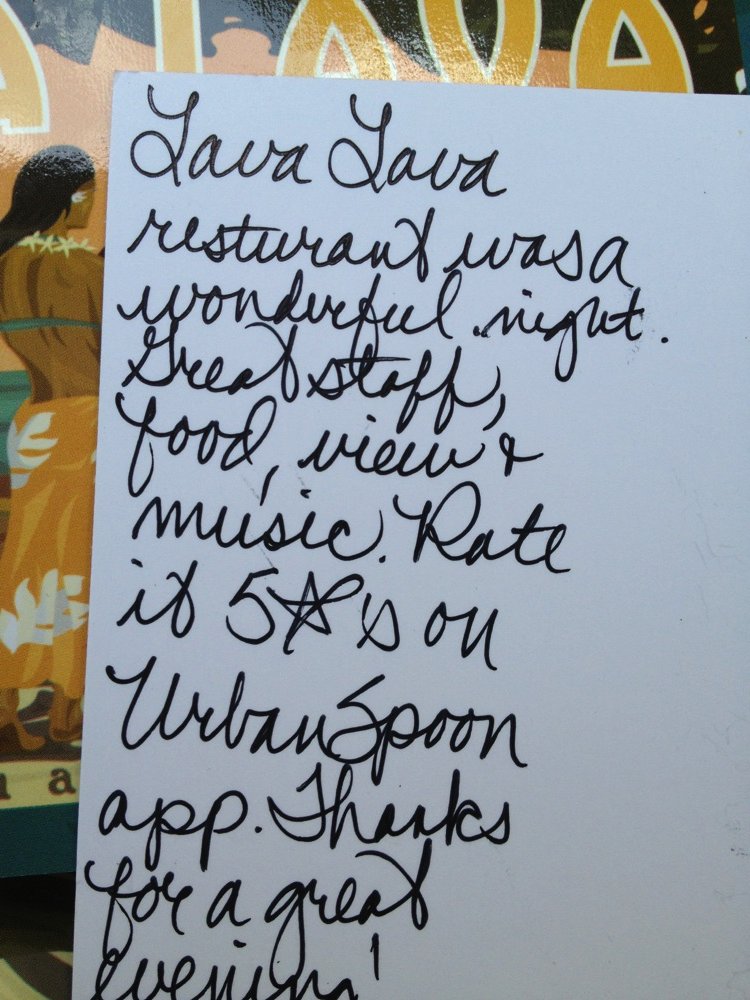 LAVA
Lava Lava
resturant was a
wonderful night.
Great staff,
food, view &
music. Rate
it 5☆'s on
UrbanSpoon
app. Thanks
for a great
evening!